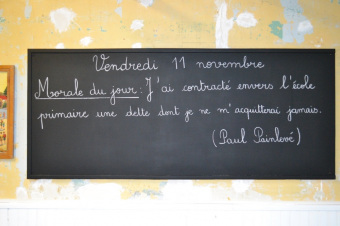 Vendredi 11 novembre
Morale du jour : J'ai contracté envers l'école
primaire une dette dont je ne m'acquitterai jamais.
(Paul Painlevé)